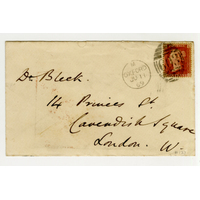 Dr. Bleek.
14 Princes St.
Cavendish Square
London. W.